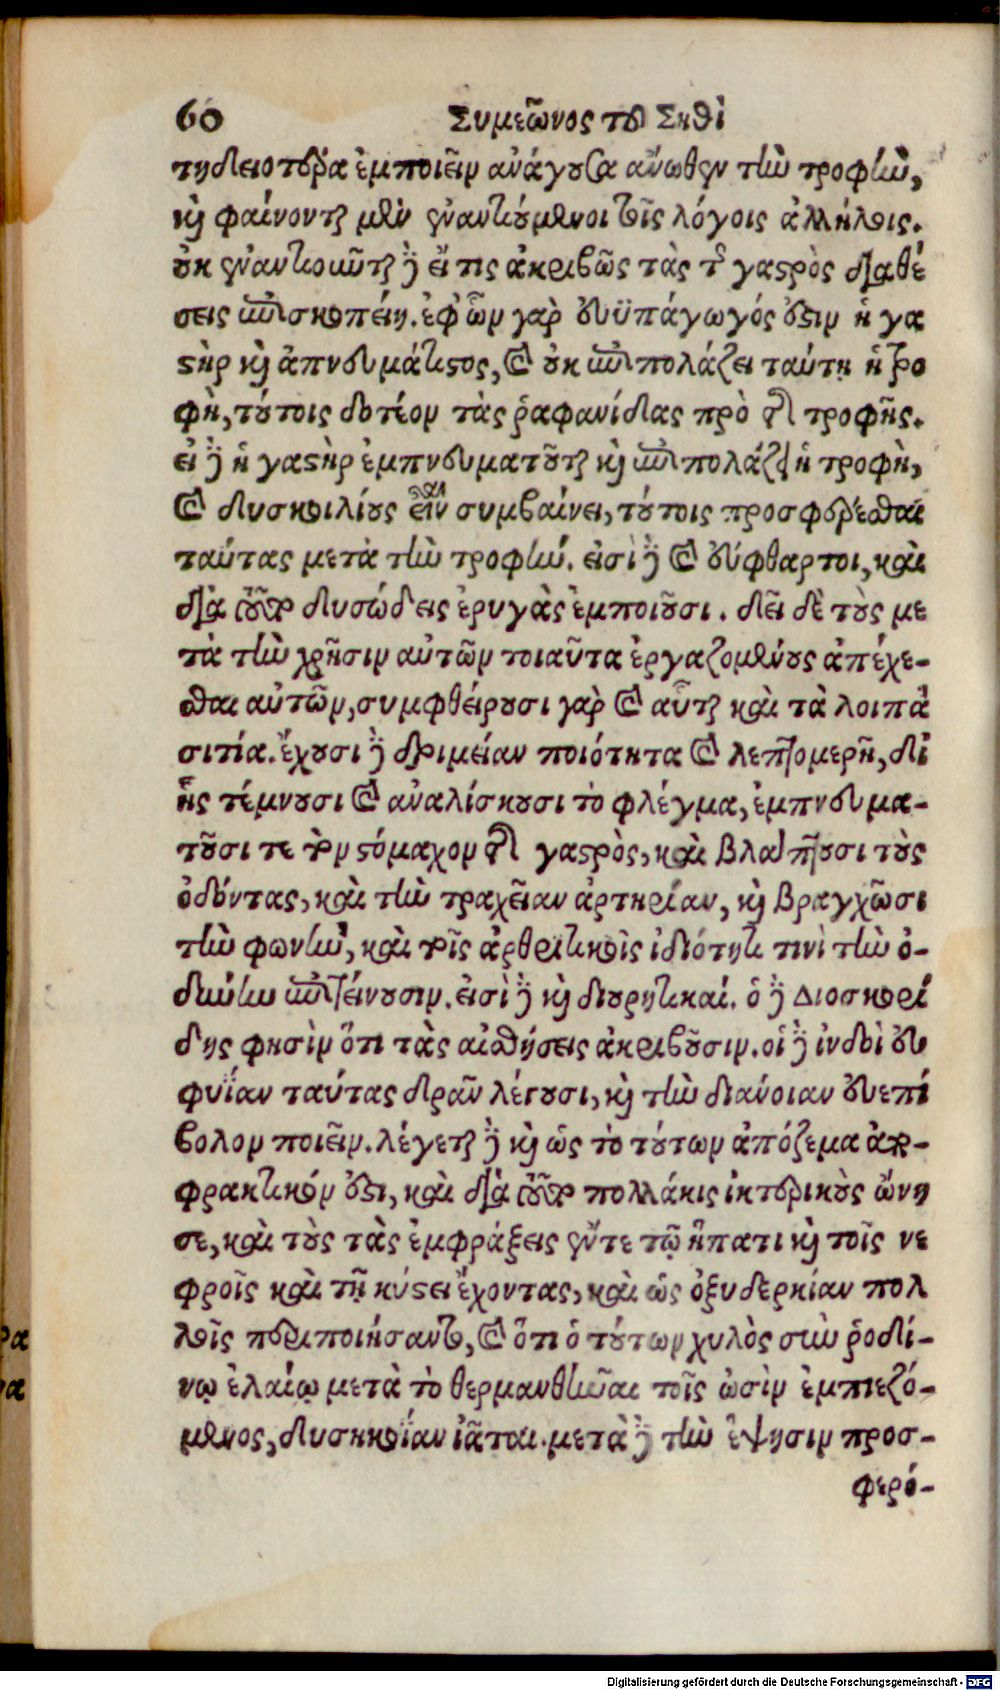 60 Συμεῶνος τοῦ Σηθὶ
τηδειοτέρα ἐμποιεῖν ἀνάγουσα ἄνωθεν τὴν τροφὴν,
καὶ φαίνονται μὲν ἐναντιούμενοι τοῖς λόγοις ἀλλήλοις.
οὐκ ἐναντιοῦνται δὲ εἴ τις ἀκριβῶς τὰς τῆς γαστρὸς διαθέ
σεις ἐπισκοπείη. ἐφ᾽ ὧν γὰρ εὐϋπάγωγός ἐστιν ἡ γα
στὴρ καὶ ἀπνευμάτιστος, καὶ οὐκ ἐπιπολάζει ταύτῃ ἡ τρο
φὴ, τούτοις δοτέον τὰς ῥαφανίδας πρὸ τῆς τροφῆς.
εἰ δὲ ἡ γαστὴρ ἐμπνευματοῦται καὶ ἐπιπολάζει ἡ τροφὴ,
καὶ δυσκοιλίους εἶναι συμβαίνει, τούτοις προσφέρεσθαι
ταύτας μετὰ τὴν τροφήν. εἰσὶ δὲ καὶ εὔφθαρτοι, καὶ
διὰ τοῦτο δυσώδεις ἐρυγὰς ἐμποιοῦσι. δεῖ δὲ τοὺς με
τὰ τὴν χρῆσιν αὐτῶν τοιαῦτα ἐργαζομένους ἀπέχε-
σθαι αὐτῶν, συμφθείρουσι γὰρ καὶ αὗται καὶ τὰ λοιπὰ
σιτία. ἔχουσι δὲ δριμεῖαν ποιότητα καὶ λεπτομερῆ, δι᾽
ἧς τέμνουσι καὶ ἀναλίσκουσι τὸ φλέγμα, ἐμπνευμα-
τοῦσι τε τὸν στόμαχον τῆς γαστρὸς, καὶ βλάπτουσι τοὺς
ὀδόντας, καὶ τὴν τραχεῖαν ἀρτηρίαν, καὶ βραγχῶσι
τὴν φωνὴν, καὶ τοῖς ἀρθριτικοῖς ἰδιότητι τινὶ τὴν ὀ-
δύνην ἐπιτείνουσιν. εἰσὶ δὲ καὶ διουρητικαί. ὁ δὲ Διοσκορί
δης φησὶν ὅτι τὰς αἰσθήσεις ἀκριβοῦσιν. οἱ δὲ ἰνδοὶ εὐ
φυΐαν ταύτας δρᾶν λέγουσι, καὶ τὴν διάνοιαν εὐεπί
βολον ποιεῖν. λέγεται δὲ καὶ ὡς τὸ τούτων ἀπόζεμα ἀπο-
φρακτικόν ἐστι, καὶ διὰ τοῦτο πολλάκις ἰκτερικοὺς ὤνη
σε, καὶ τοὺς τὰς ἐμφράξεις ἔν τε τῷ ἥπατι καὶ τοῖς νε
φροῖς καὶ τῇ κύστει ἔχοντας, καὶ ὡς ὀξυδερκίαν πολ
λοῖς περιποιήσαντο, καὶ ὅτι ὁ τούτων χυλὸς σὺν ῥοδί-
νῳ ἐλαίῳ μετὰ τὸ θερμανθῆναι τοῖς ὠσὶν ἐμπιεζό-
μενος, δυσηκοΐαν ἰᾶται. μετὰ δὲ τὴν ἕψησιν προσ-
φερό-
ρα
ρα
Digitalisierung gefördert durch die Deutsche Forschungsgemeinschaft - DFG